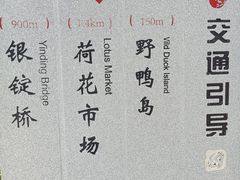 交通引导
(150m)
野鸭岛
Wild Duck Island
(1.4km)
荷花市场
Lotus Market
(900m)
银锭桥
Yinding Bridge